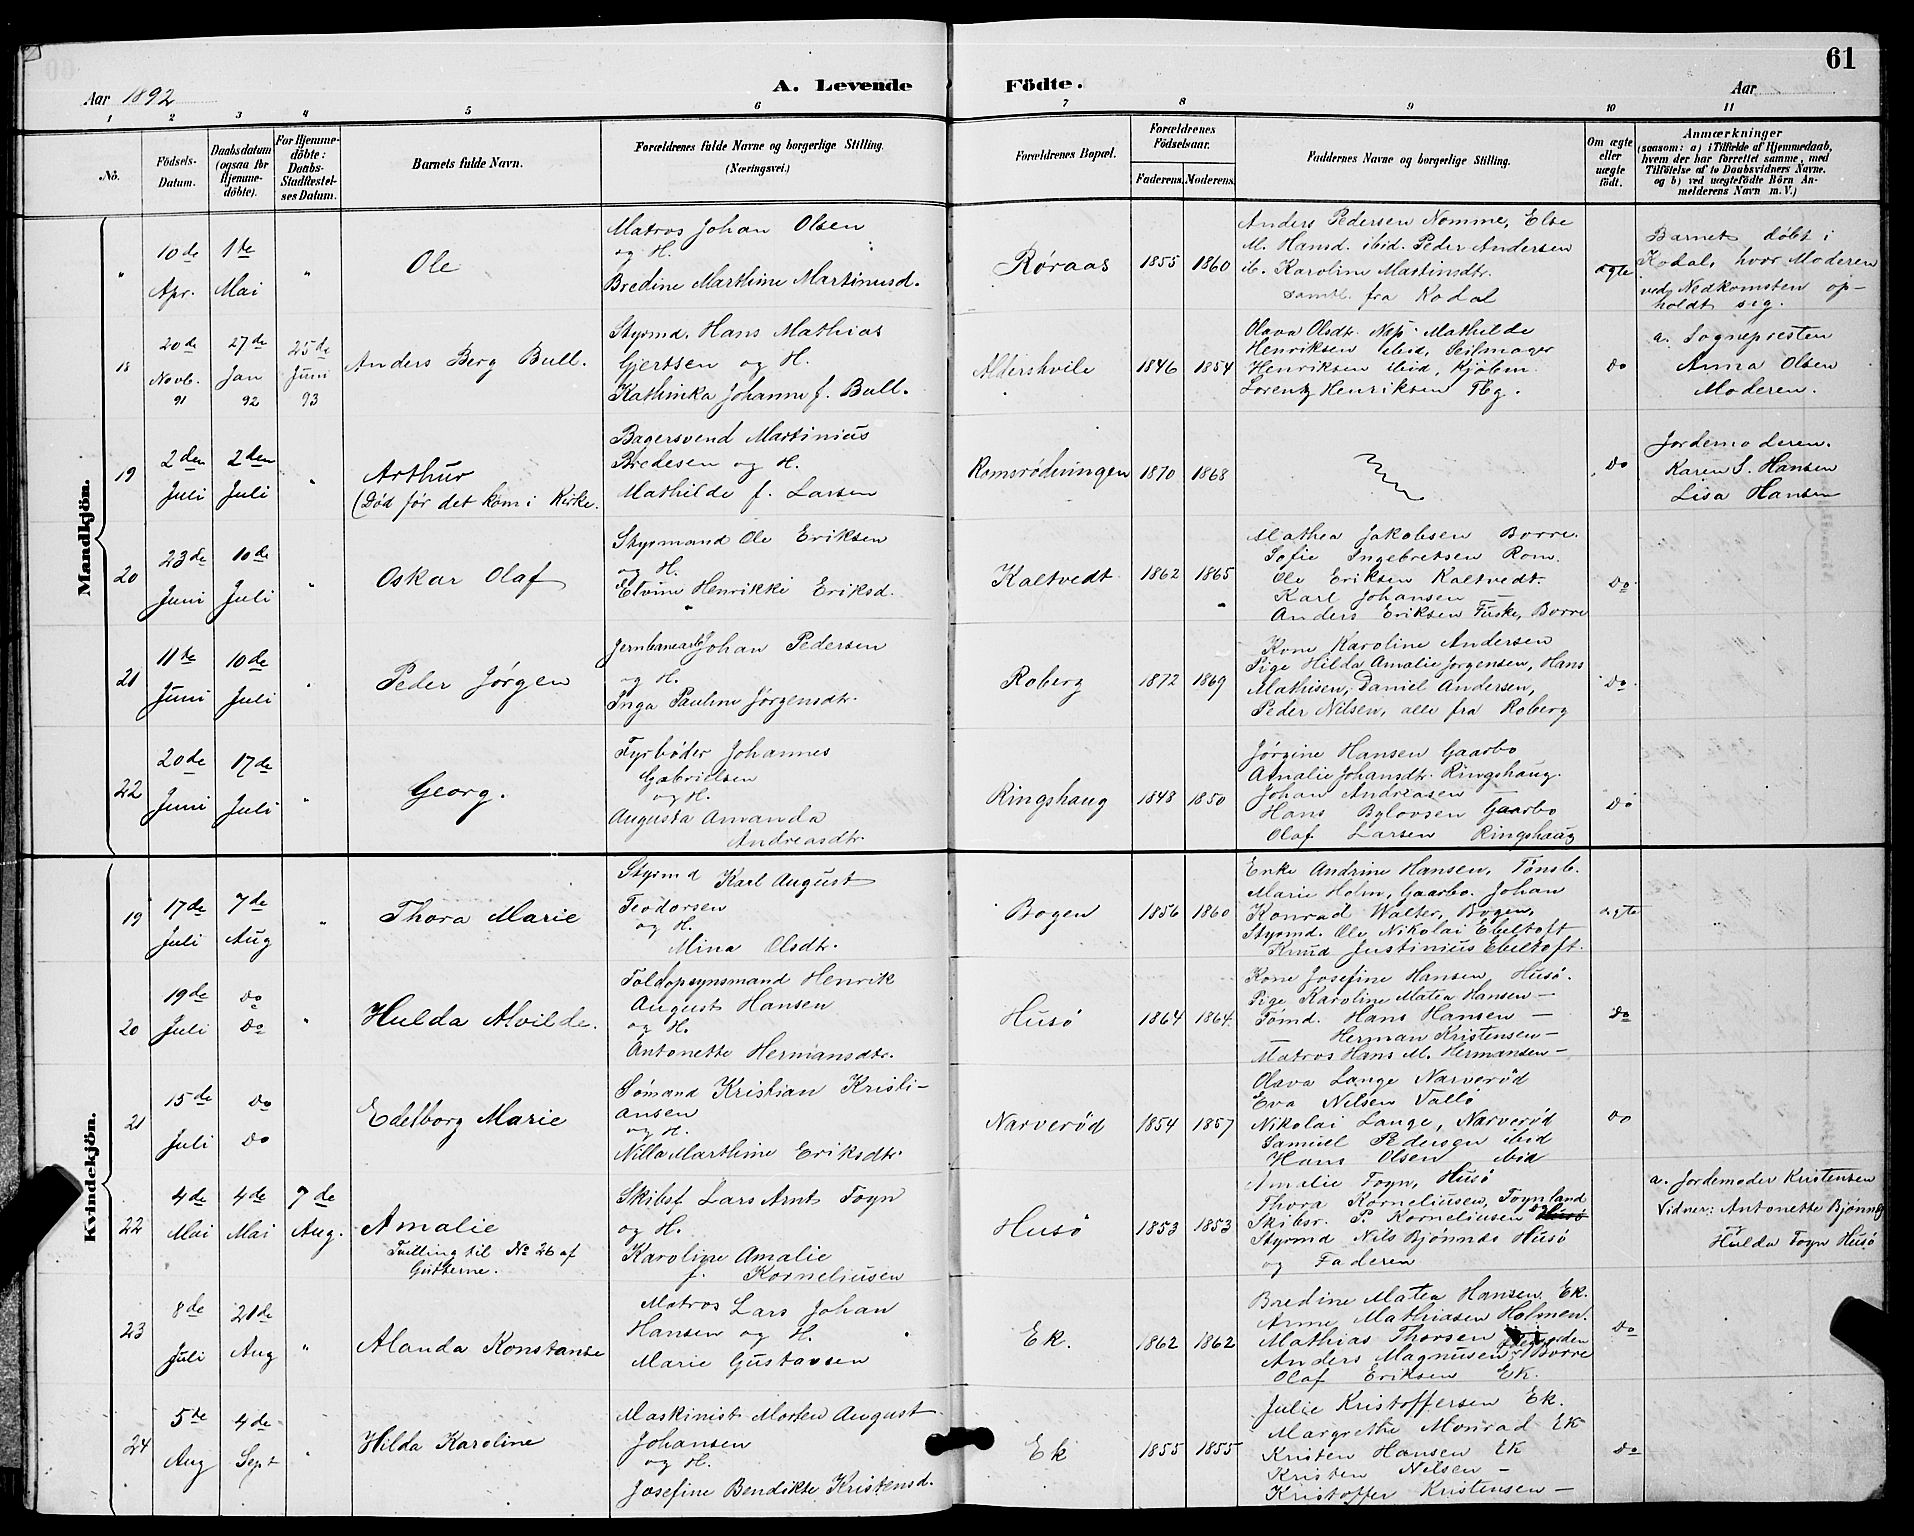 61
A. Levende Födte.
Aar 1892
Aar
1 2 3 4 5 6 7 8 9 10 11
No.
Födsels-Datum.
Daabsdatum (ogsaa for Hjemme-döbte).
For Hjemme-döbte: Daabs-Stadfæstel-ses Datum.
Barnets fulde Navn.
Forældrenes fulde Navne og borgerlige Stilling. (Næringsvei.)
Forældrenes Bopæl.
Forældrenes Födselsaar.
Faderens. Moderens.
Faddernes Navne og borgerlige Stilling.
Om ægte eller uægte födt.
Anmærkninger
(saasom: a) i Tilfælde af Hjemmedaab, hvem der har forrettet samme, med Tilföielse af to Daabsvidners Navne, og b) ved uægtefödte Börn An-melderens Navn m. V.)
Mandkjön.
" 10de Apr. 1te Mai "
Ole
Matros Johan Olsen
og H.
Bredine Marthine Martinusd.
Røraas 1855 1860
Anders Pedersen Nomme, Else
M. Hansd. ibid. Peder Andersen
ib. Karoline Martinsdtr.
samtl. fra Kodal
ægte
Barnet døbt i
Kodal, hvor Moderen
ved Nedkomsten op-
holdt sig.
18 20de Novb. 91 27de Jan 92 25de Juni 93
Anders Berg Bull.
Styrmd. Hans Mathias
Gjertsen og H.
Kathinka Johanne f. Bull.
Aldershvile 1846 1854
Olava Olsdtr. Nep. Mathilde
Henriksen ibid, Seilmager
Henriksen ibid, Kjøbm.
Lorentz Henriksen Tbg.
do
a. Sognepresten
Anna Olsen
Moderen.
19 2den Juli 2den Juli "
Arthur
(Død før det kom i Kirke.
Bagersvend Martinius
Bredesen og H.
Mathilde f. Larsen
Romsrødningen 1870 1868
do
Jordemoderen.
Karen S. Hansen
Lisa Hansen
20 23de Juni 10de Juli "
Oskar Olaf
Styrmand Ole Eriksen
og H.
Elvine Henrikke Eriksd.
Kaltvedt 1862 1865
Mathea Jakobsen Borre.
Sofie Ingebretsen Rom.
Ole Eriksen Kaltvedt.
Karl Johansen —
Anders Eriksen Fuske, Borre
do
21 11te Juni 10de Juli "
Peder Jørgen
Jernbanearb. Johan Pedersen
og H.
Inga Pauline Jørgensdtr.
Roberg 1872 1869
Kone Karoline Andersen
Pige Hilda Amalie Jørgensen, Hans
Mathisen, Daniel Andersen,
Peder Nilsen, alle fra Roberg
do
22 20de Juni 17de Juli "
Georg.
Fyrbøder Johannes
Gabrielsen
og H.
Augusta Amanda
Andreasdtr.
Ringshaug 1848 1850
Jørgine Hansen Gaarbo
Amalie Johansdtr. Ringshaug.
Johan Andreasen —
Hans Bylovsen Gaarbo
Olaf Larsen Ringshaug
do
Kvindekjön.
19 17de Juli 7de Aug "
Thora Marie
Styrmd Karl August
Teodorsen
og H.
Mina Olsdtr.
Bogen 1856 1860
Enke Andrine Hansen, Tønsb.
Marie Holm, Gaarbo. Johan
Konrad Walter, Bogen,
Styrmd. Ole Nikolai Ebeltoft
Knud Justinius Ebeltoft.
ægte
20 19de Juli do do "
Hulda Alvilde.
Toldopsynsmand Henrik
August Hansen
og H.
Antonette Hermansdtr.
Husö 1864 1864.
Kone Josefine Hansen, Husö.
Pige Karoline Matea Hansen —
Tømd. Hans Hansen —
Herman Kristensen —
Matros Hans M. Hermansen —
do
21 15de Juli do do
Edelborg Marie
Sømand Kristian Kristi-
ansen
og H.
Nilla Marthine Eriksdtr.
Narverød 1854 1857
Olava Lange Narverød
Eva Nilsen Vallö
Nikolai Lange, Narverød
Samuel Pedersen ibid
Hans Olsen ibid
do
22 4de Mai 4de Mai 7de Aug.
Amalie
Tvilling til No 26 af
Gutterne.
Skibsf. Lars Arnt Foyn
og H.
Karoline Amalie
f. Korneliusen
Husö 1853 1853
Amalie Foyn, Husö
Thora Korneliusen, Foynland
Skibsr. P. Korneliusen do
Styrmd Nils Bjønnes Husö
og Faderen
a. Jordemoder Kristensen
Vidner: Antonette Bjønnes
Hulda Foyn Husö
23 8de Juli 21de Aug "
Alanda Konstanse
Matros Lars Johan
Hansen og H.
Marie Gustavsen
Ek. 1862 1862
Bredine Matea Hansen, Ek.
Anne Mathiasen Holmen.
Mathias Thorsen
Anders Magnusen, Borre
Olaf Eriksen Ek.
do
24 5te Aug 4de Sept "
Hilda Karoline
Maskinist Morten August
Johansen
og H.
Josefine Bendikte Kristensd.
Ek 1855 1855
Julie Kristoffersen Ek.
Margrethe Monrad Ek
Kristen Hansen Ek
Kristen Nilsen —
Kristoffer Kristensen —
do